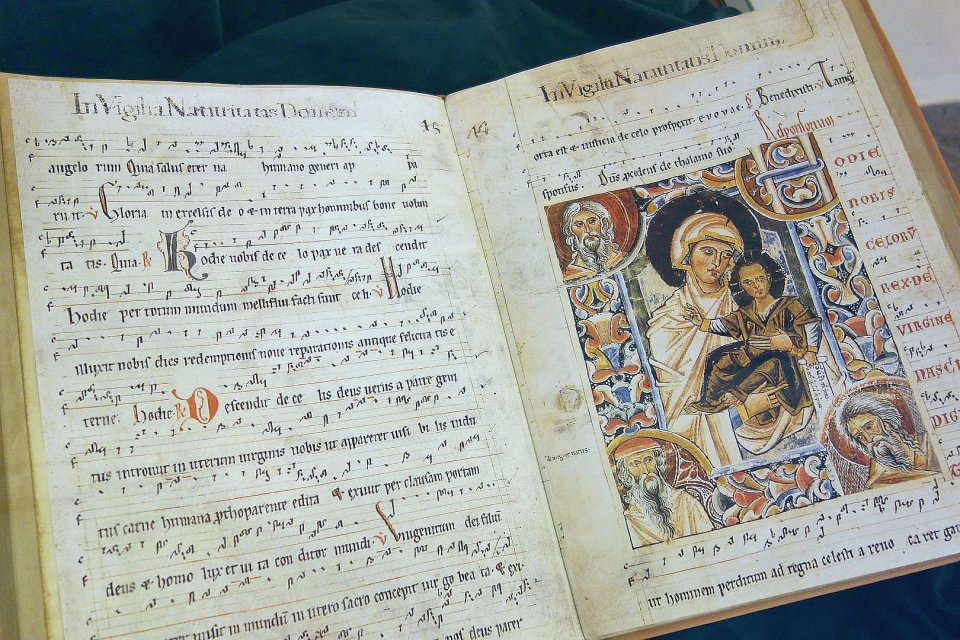 In Vigilia Natiuitatis Domini
15
angelo rum Quia salus eter na humano generi ap pa
ru it · v Gloria in excelsis de o & in terra pax hominibus bone uolun
ta tis · Quia · R Hodie nobis de ce lo pax ue ra des cendit
Hodie per totum mundum melliflui facti sunt celi · v Hodie
illuxit nobis dies redemptionis noue reparationis antique felicita tis e
terne · Hodie · R Descendit de ce lis deus uerus a patre geni
tus introiuit in uterum uirginis nobis ut appareret uisi bi lis indu
tus carne humana prothoparente edita & exiuit per clausam portam
deus & homo lux et ui ta con ditor mundi · v Unigenitum dei filiū
misit in mundū in utero sacro concepit uirgo bea ta · & exi·
nos deus pater
In Vigilia Natiuitatis Domini
16
orta est & iusticia de celo prosperit · e v o v a e · Benedixisti · v Tamq̄
sponsus · Dūs p̄cedens de thalamo suo · Responsorium
ODIE
NOBIS
CELORV̄
REX·DE
VIRGINE
NASCI
DIG
ut hominem perditum ad regna celesti a reuo ca ret gau